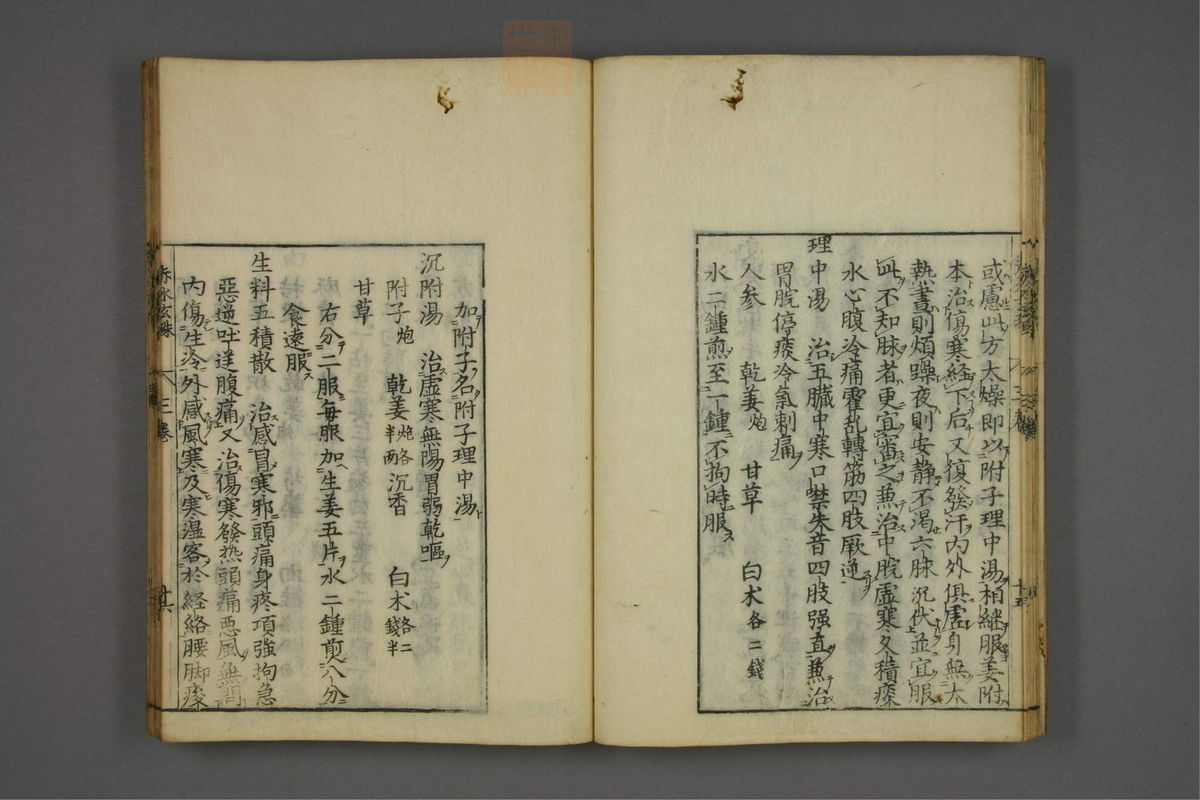 或慮此方太燥即以附子理中湯相継服姜附
本治傷寒経下后又復發汗内外俱虚身無大
熱晝則煩躁夜則安静不渇六脉沉伏並宜服
此不知脉者更宜審之兼治中脘虚寒久積痰
水心腹冷痛霍乱轉筋四肢厥逆
理中湯 治五臓中寒口噤失音四肢强直兼治
胃脘停痰冷氣刺痛
人参 乾姜炮 甘草 白术各二錢
水二鍾煎至一鍾不拘時服
加附子名附子理中湯
沉附湯 治虚寒無陽胃弱乾嘔
附子炮 乾姜炮各半两 沉香 白术各二錢半
甘草
右分二服每服加生姜五片水二鍾煎八分
食遠服
生料五積散 治感冒寒邪頭痛身疼項強拘急
惡逆吐逆腹痛又治傷寒發热頭痛悪風無問
内傷生冷外感風寒及寒温客於経絡腰脚痠
赤水玄珠 三卷 十六
十五